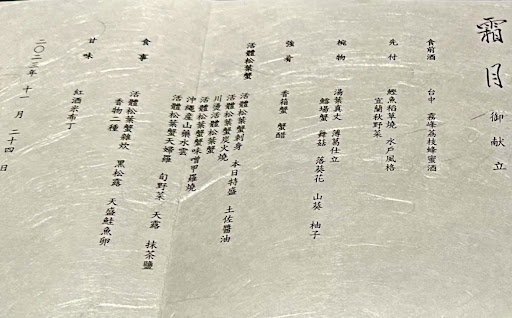 霜月 御献立
食前酒 台中 霧峰荔枝蜂蜜酒
先付 鰹魚稻草燒 水戶風格
宜蘭秋野菜
椀物 湯葉真丈 薄葛仕立
鱈場蟹 舞菇 落葵花 山葵 柚子
強肴 香箱蟹 蟹醋
活體松葉蟹 活體松葉蟹刺身 本日特盛 土佐醬油
活體松葉蟹炭火燒
川燙活體松葉蟹
活體松葉蟹味噌甲羅燒
沖繩産山藥水雲
活體松葉蟹天婦羅 旬野菜 天露 抹茶鹽
食事 活體松葉蟹雜炊 黑松露 天盛鮭魚卵
香物二種
甘味 紅酒米布丁
二〇二三年 十一月 二十四日